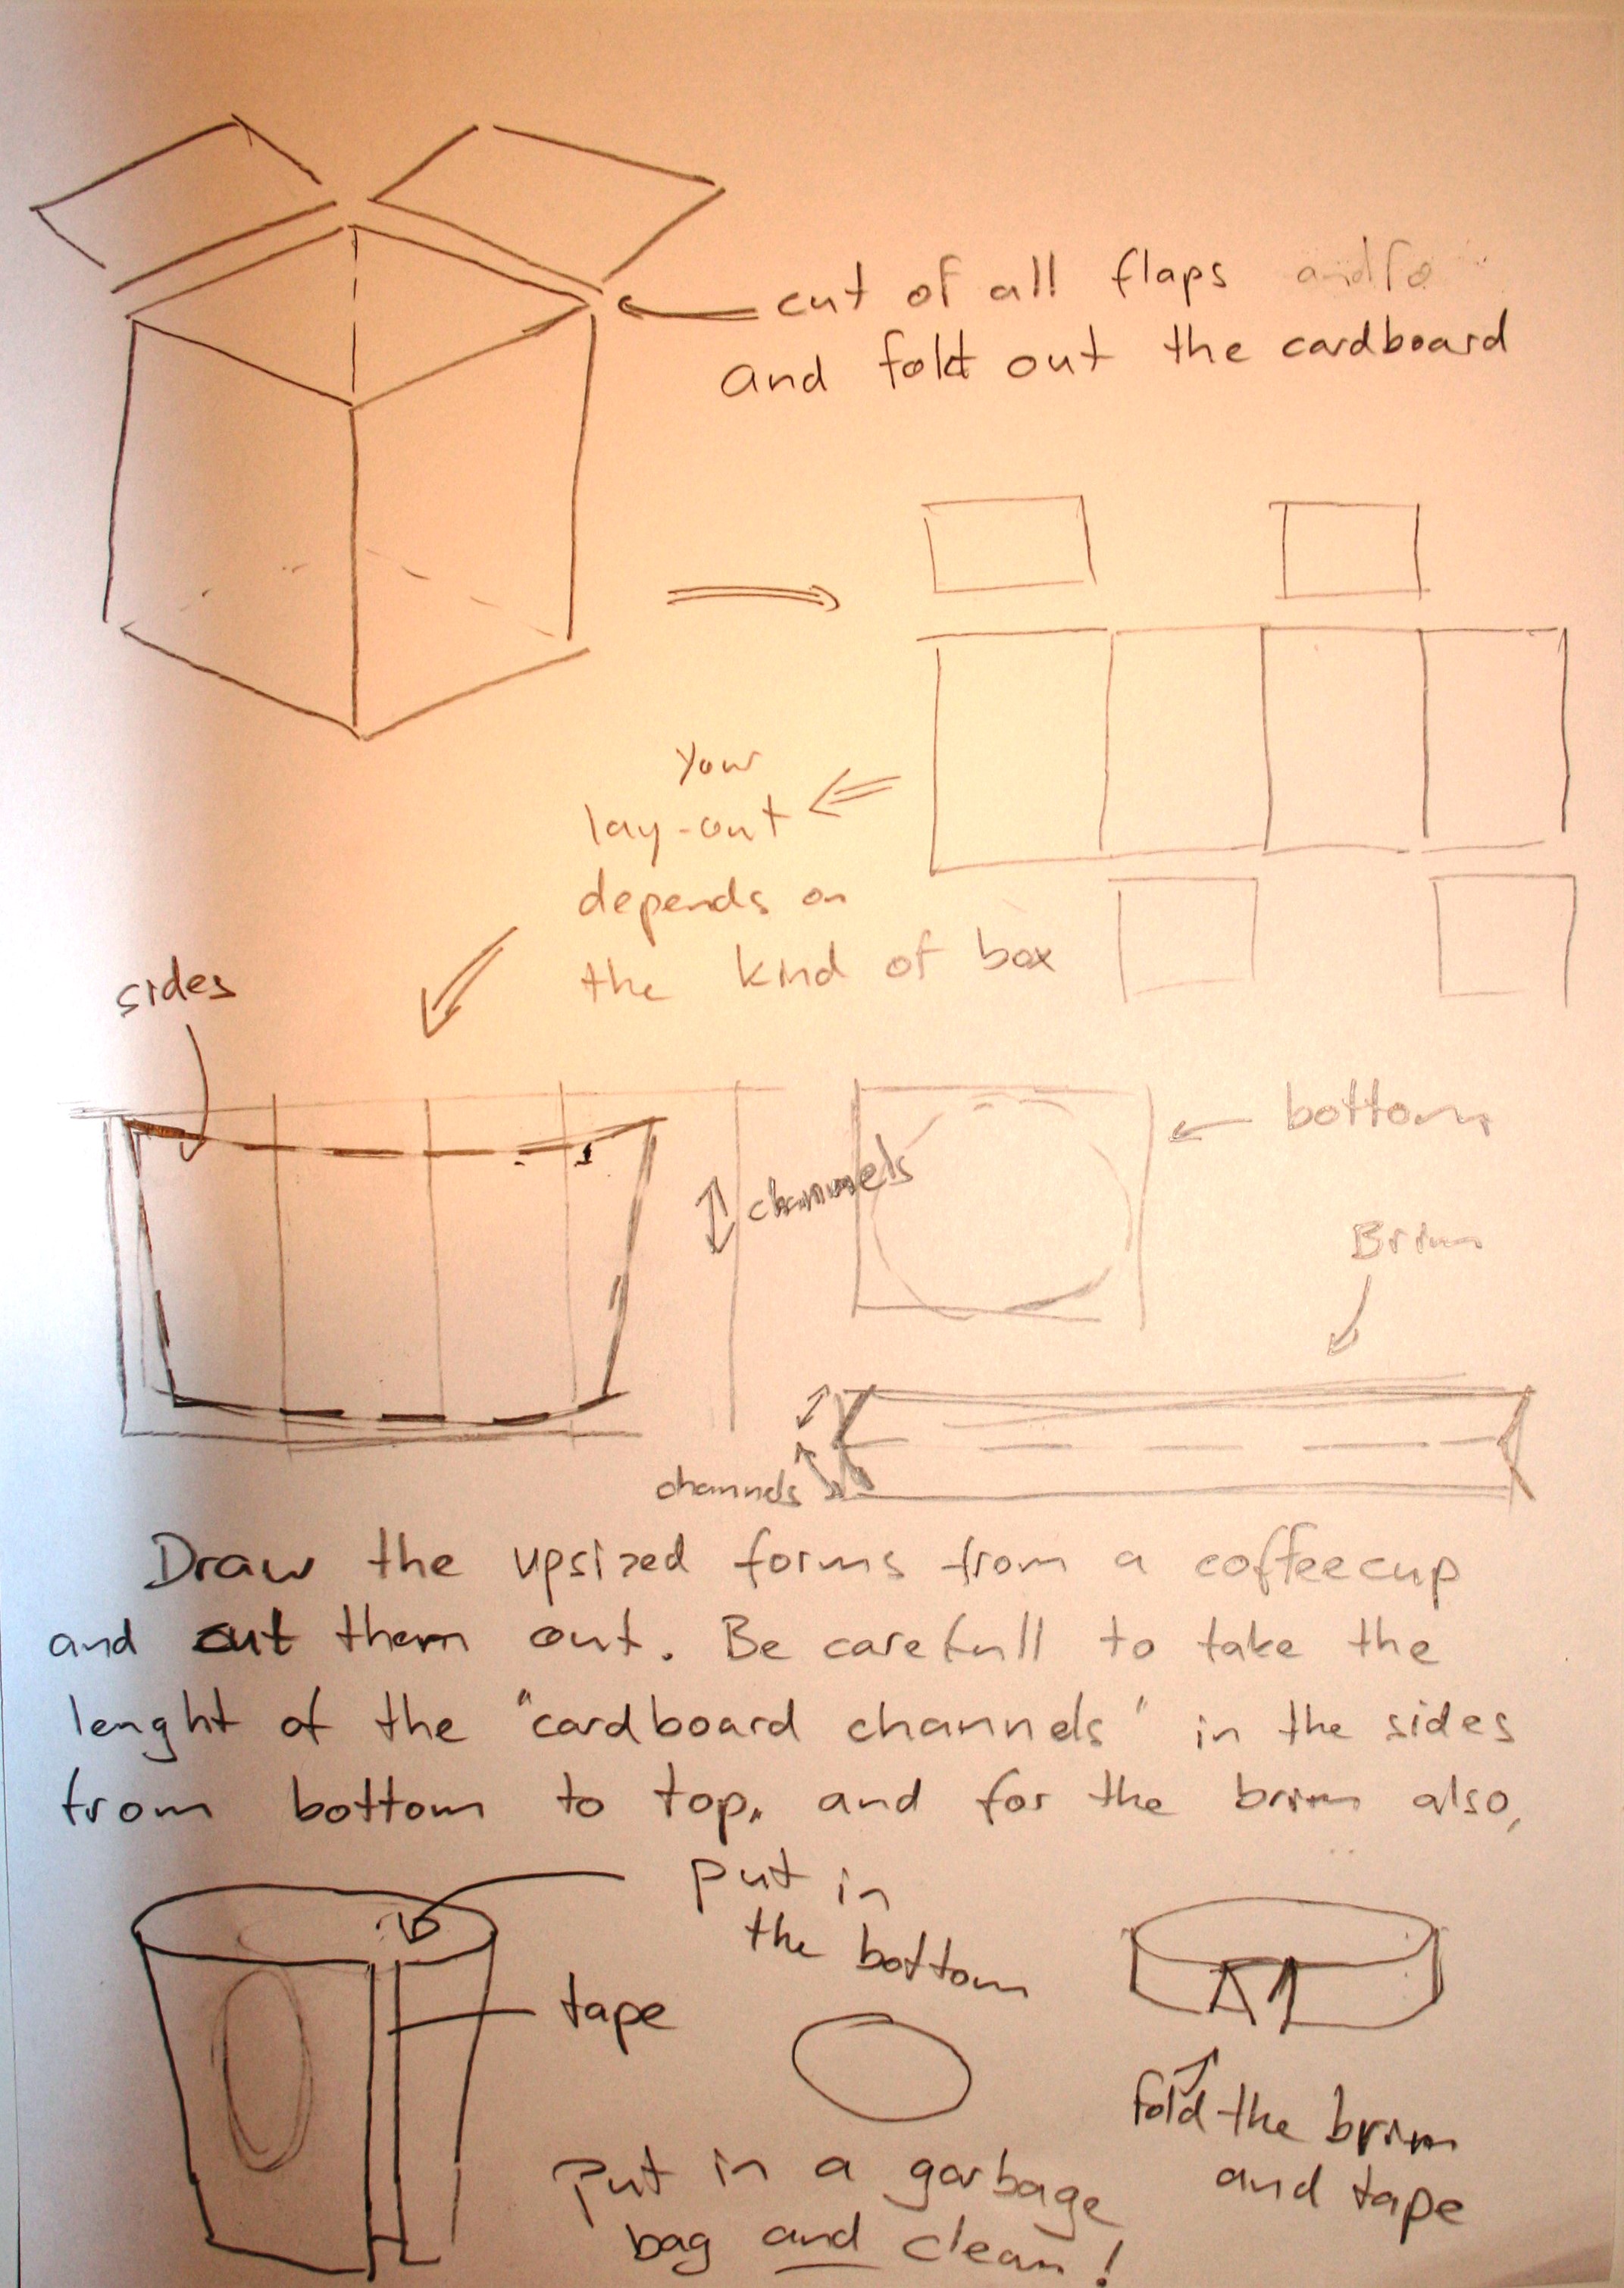 cut of all flaps
and fold out the cardboard
your
lay-out
depends on
the kind of box
sides
channels
bottom
Brim
channels
Draw the upsized forms from a coffeecup
and cut them out. Be carefull to take the
lenght of the "cardboard channels" in the sides
from bottom to top, and for the brim also,
tape
put in
the bottom
fold the brim
and tape
Put in a garbage
bag and clean!